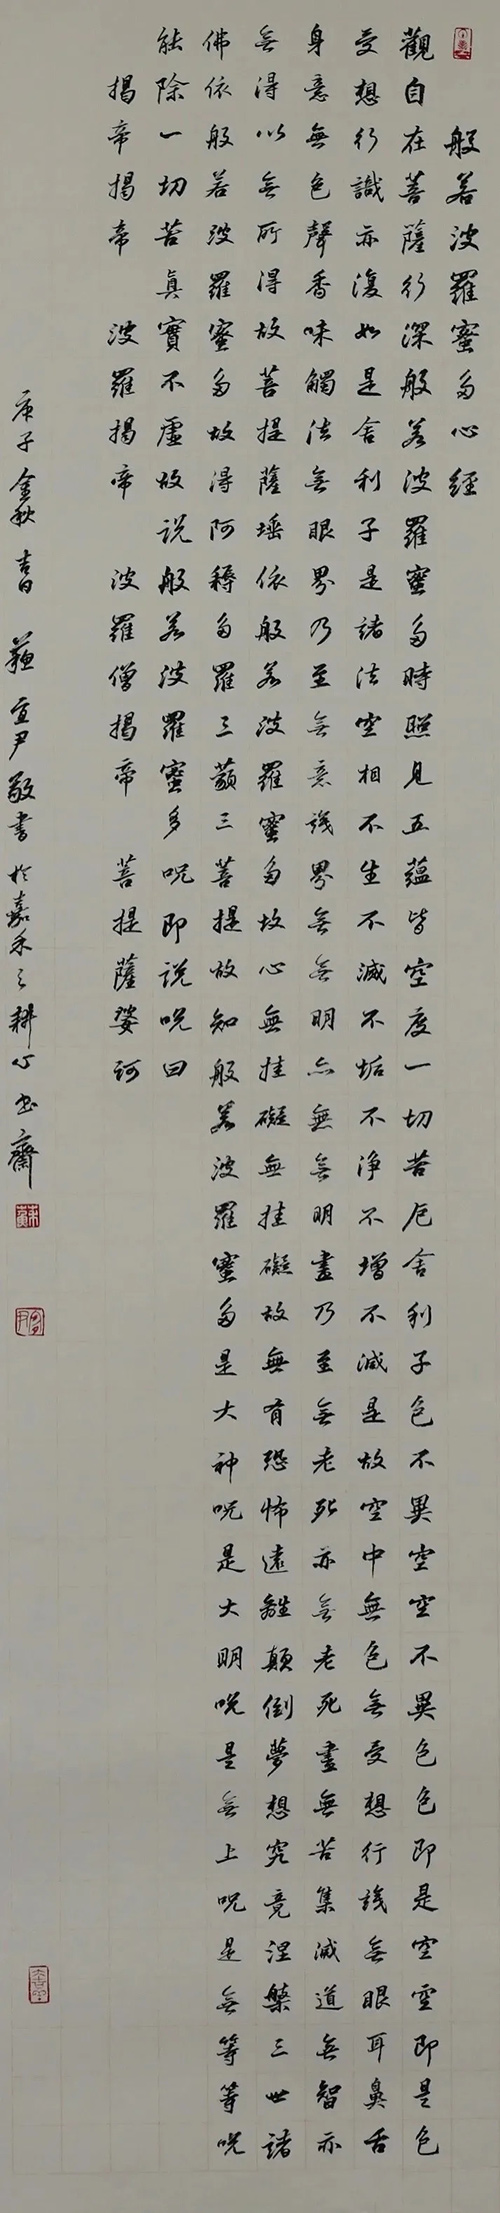 般若波羅蜜多心經
觀自在菩薩行深般若波羅蜜多時照見五蘊皆空度一切苦厄舍利子色不異空空不異色色即是空空即是色
受想行識亦復如是舍利子是諸法空相不生不滅不垢不淨不增不減是故空中無色無受想行識無眼耳鼻舌
身意無色聲香味觸法無眼界乃至無意識界無無明亦無無明盡乃至無老死亦無老死盡無苦集滅道無智亦
無得以無所得故菩提薩埵依般若波羅蜜多故心無挂礙無挂礙故無有恐怖遠離顛倒夢想究竟涅槃三世諸
佛依般若波羅蜜多故得阿耨多羅三藐三菩提故知般若波羅蜜多是大神呪是大明呪是無上呪是無等等呪
能除一切苦真實不虛故説般若波羅蜜多呪即説呪曰
揭帝揭帝 波羅揭啼 波羅僧揭帝 菩提薩婆訶
庚子金秋吉日 蘇宜尹敬書於嘉禾之耕心書齋